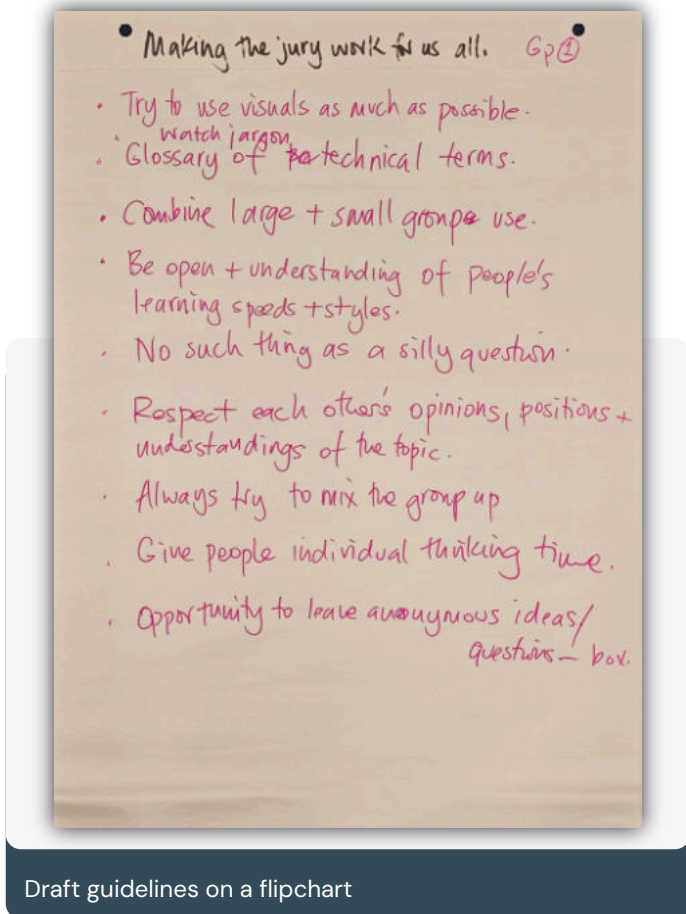 Making the jury work for us all. Gp ①
· Try to use visuals as much as possible.
· watch jargon
· Glossary of technical terms.
· Combine large + small groups use.
· Be open + understanding of people's
learning speeds + styles.
· No such thing as a silly question.
· Respect each other's opinions, positions +
understandings of the topic.
· Always try to mix the group up
· Give people individual thinking time.
· Opportunity to leave anonymous ideas/
questions – box.
Draft guidelines on a flipchart